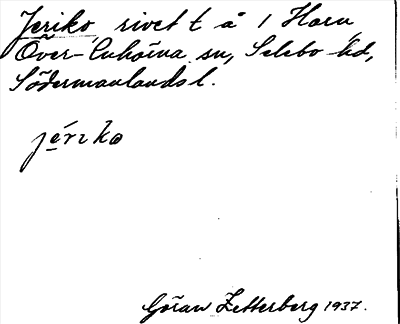 Jeriko rivet t å 1 Harn
Över-Enhörna sn, Selebo hd,
Södermanlands l.
jériko
Göran Zetterberg 1937.